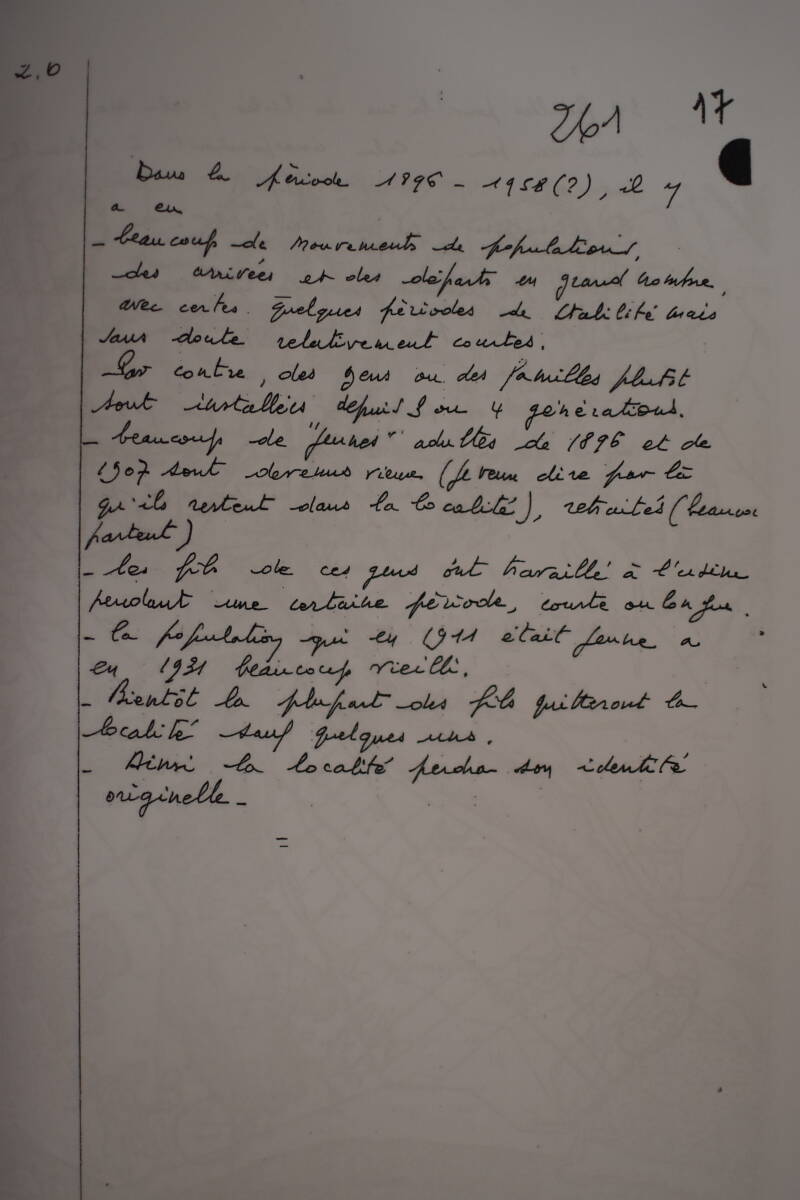 2.0
261 17
Dans la période 1896 - 1958 (?), il y
a eu
- beaucoup de mouvements de populations,
des arrivées et des départs en grand nombre,
avec certes quelques périodes de stabilité mais
sans doute relativement courtes.
- Par contre, des gens ou des familles plutôt
sont installées depuis 3 ou 4 générations.
- beaucoup de "jeunes" adultes de 1896 et de
1907 sont devenus vieux (je veux dire par là
qu'ils restent dans la localité), retraités (beaucou
partent)
- les fils de ces gens ont travaillé à l'usine
pendant une certaine période, courte ou longue.
- la population qui en 1911 était jeune a
en 1931 beaucoup vieilli.
- Bientôt la plupart des fils quitteront la
localité sauf quelques uns.
- Ainsi la localité perdra son identité
originelle -